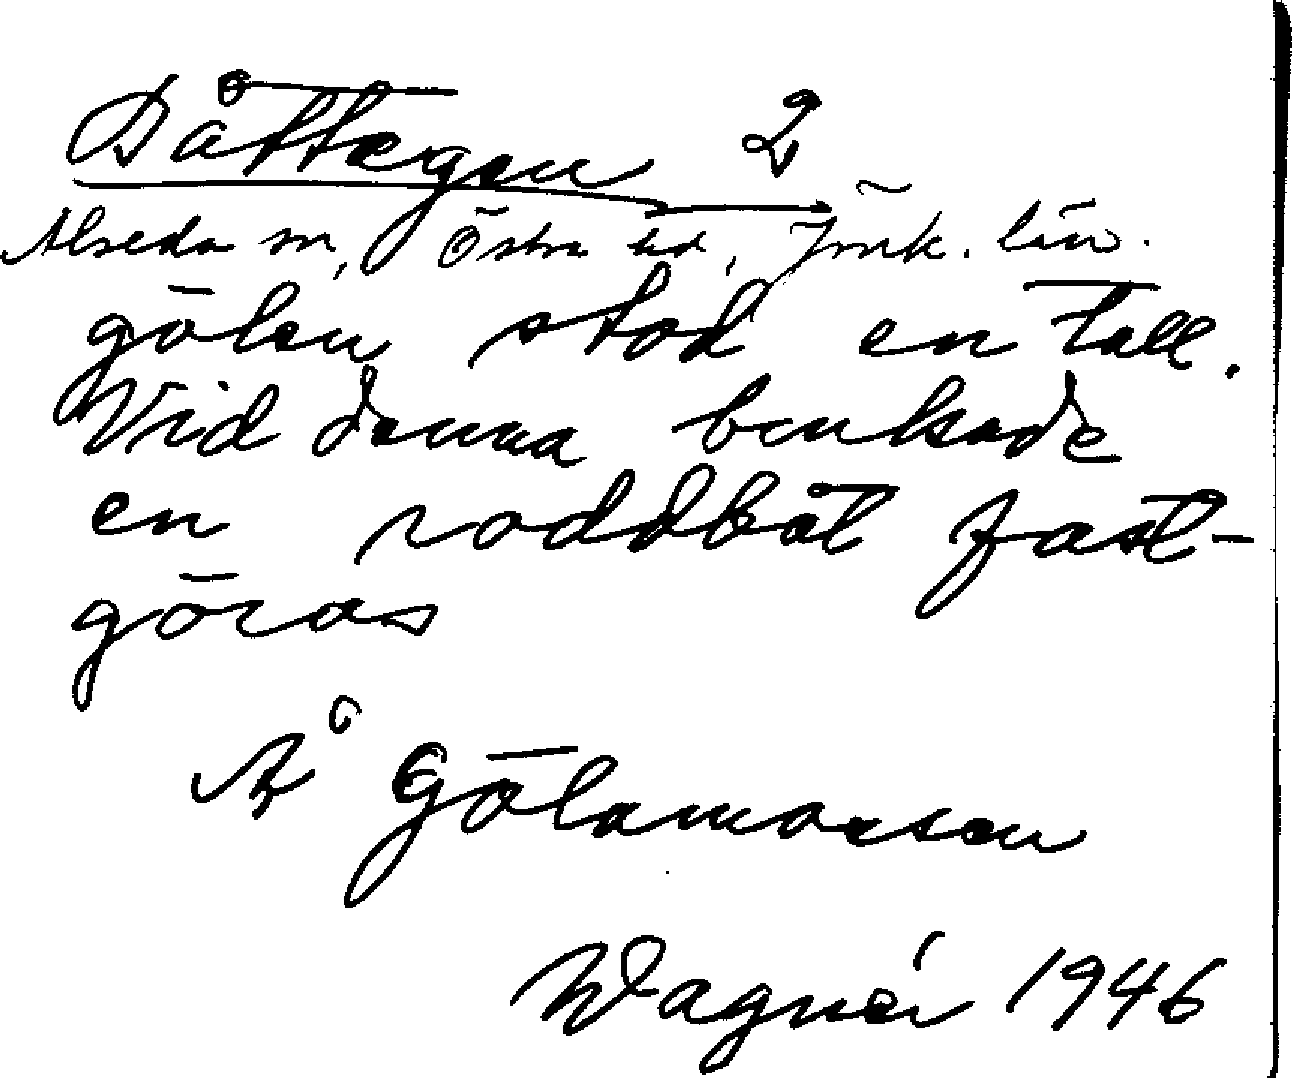 Båttegen 2
Alseda sn, Östra hd, Jönk. län.
gölen stod en tall.
Vid denna brukade
en roddbåt fast-
göras
Å Gölamossen
Wagnér 1946